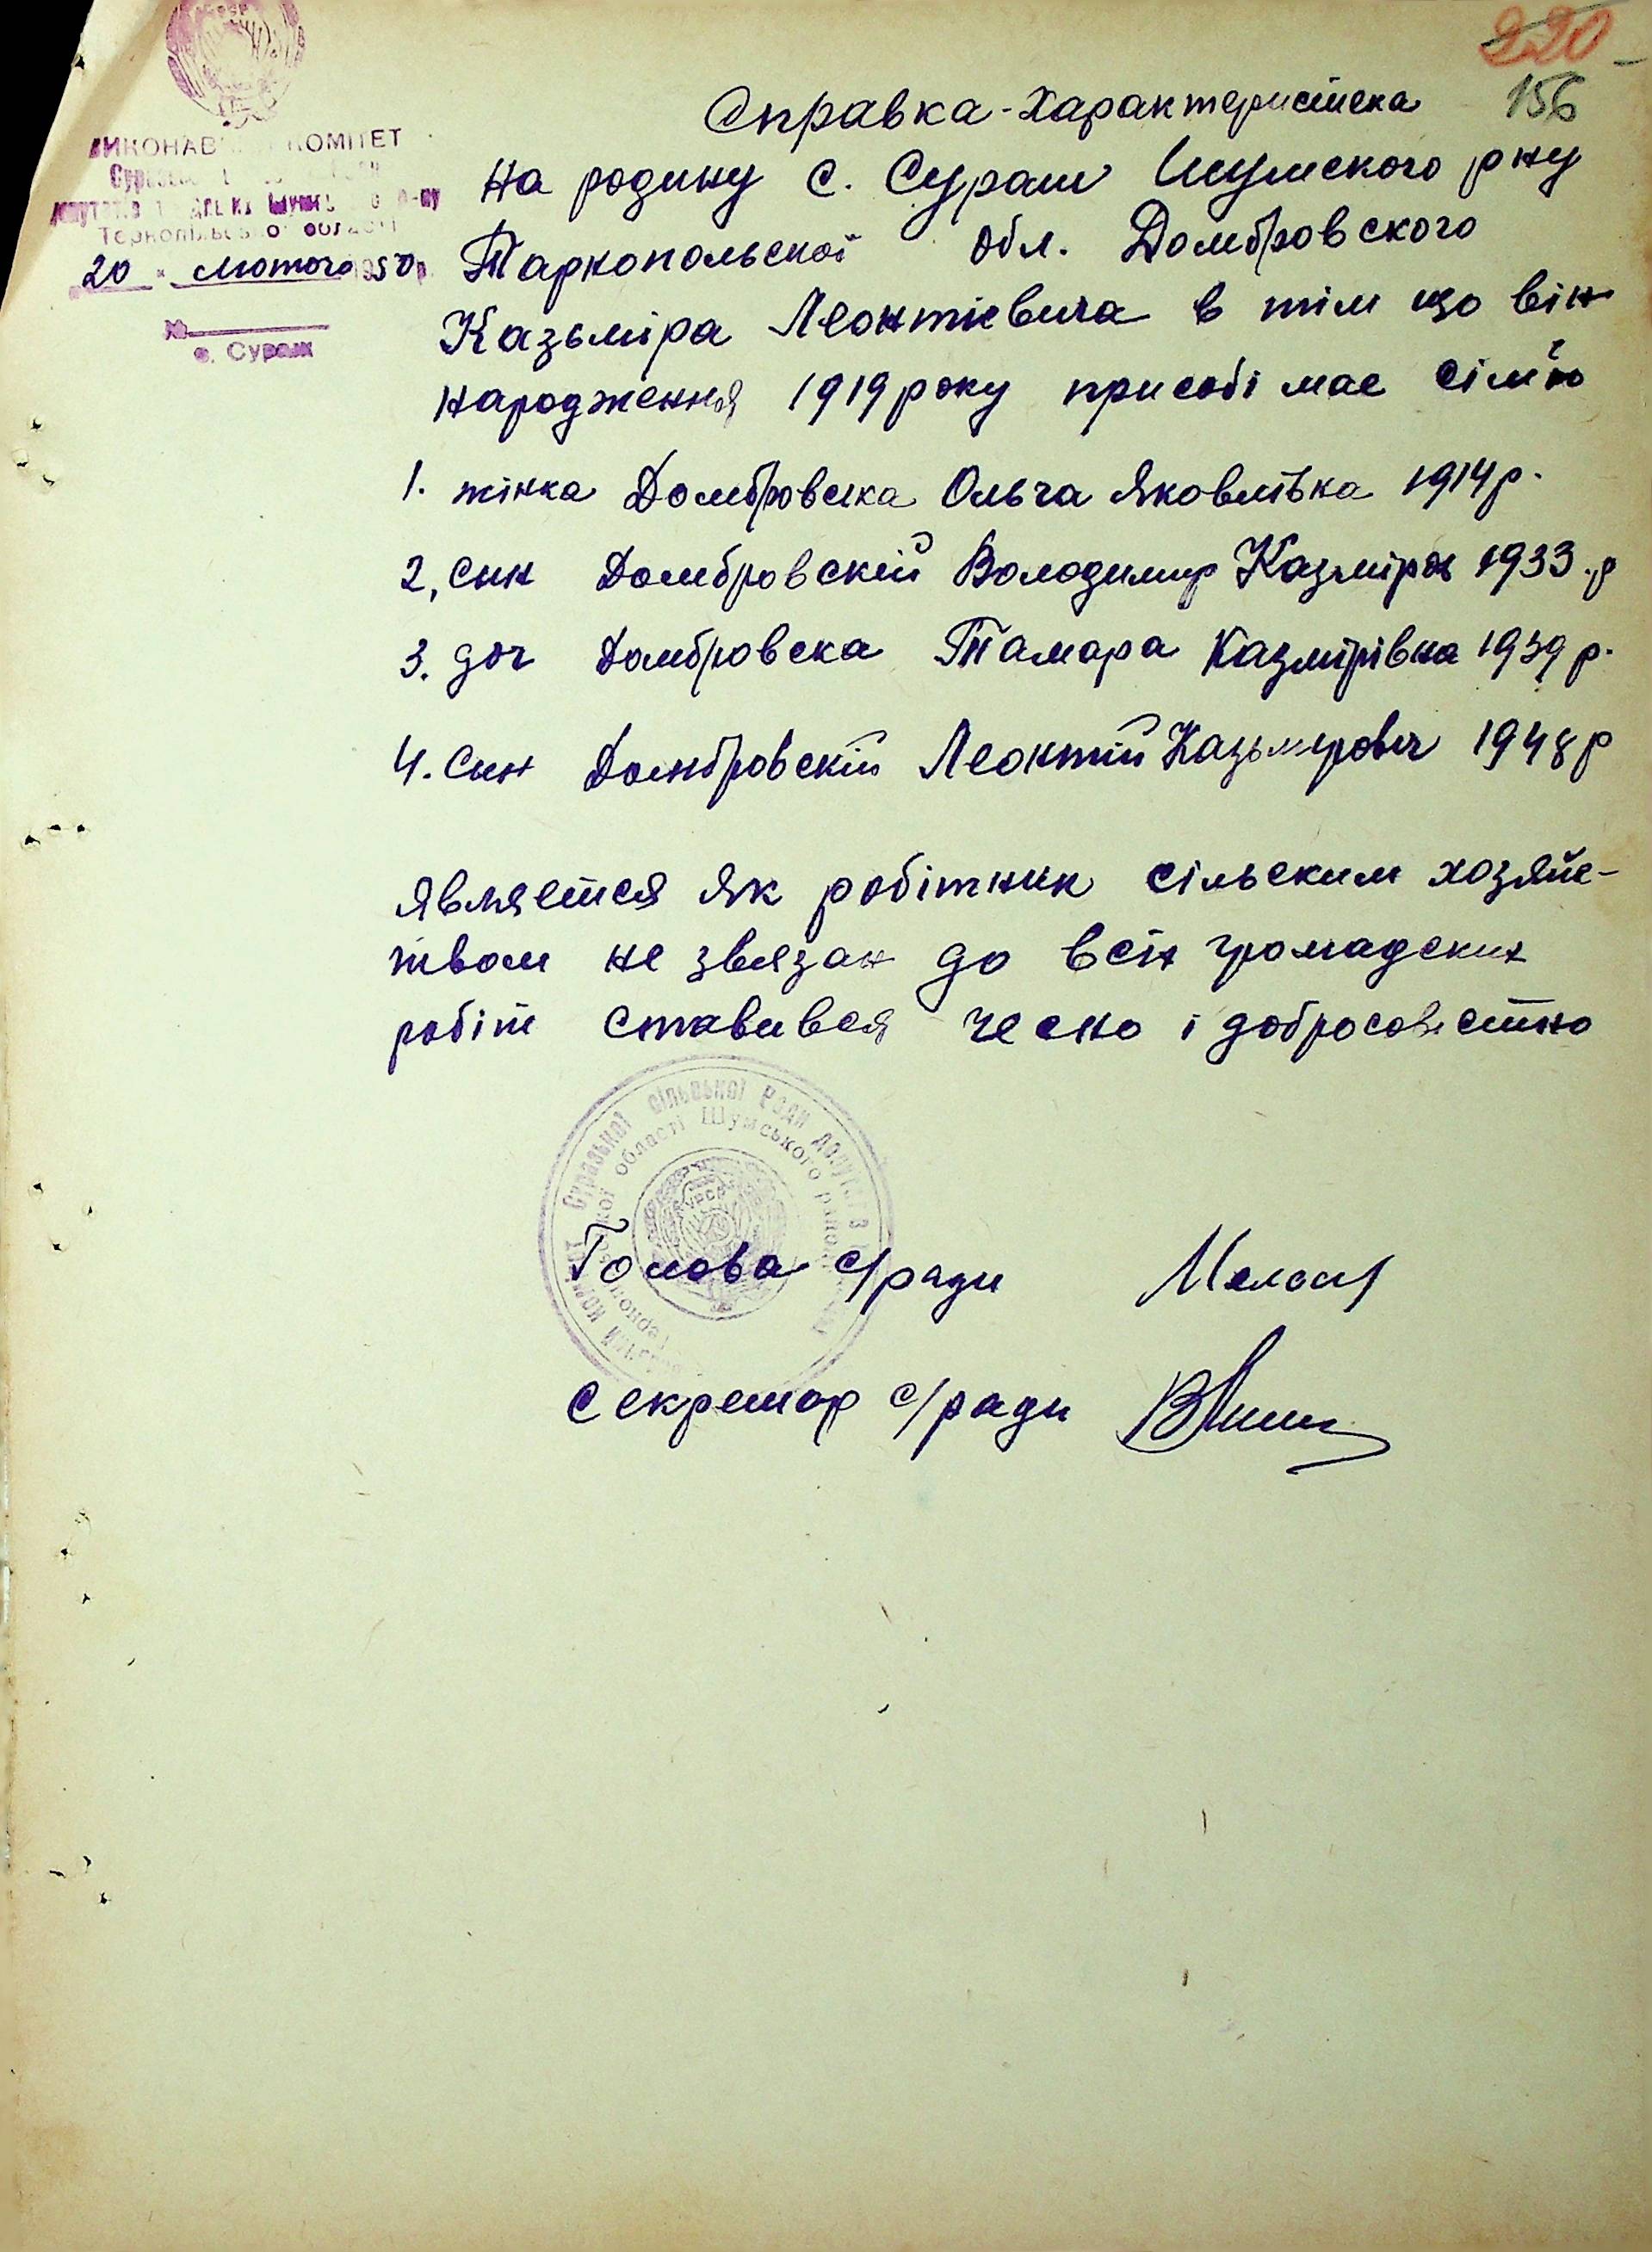 220
156
ВИКОНАВ КОМІТЕТ
Тернопільсько област
20 лютого 1950р.
№
с. Сураж
Справка-характеристека
на родину с. Сураш Шумского рну
Таркопольской обл. Домбровского
Казьміра Леонтіевича в тім що він
народження 1919 року присобі має сімю
1. жінка Домбровска Ольга Яковлівка 1914 р.
2, син Домбровскій Володимир Казміров 1933 .р
3. доч Домбровска Тамара Казмірівна 1939 р.
4. син Домбровскій Леонтій Казьмирович 1948 р
является як робітник сільским хозяйс-
твом не звязан до всіх громадских
робіт ставився чесно і добросовестно
Суразької сільської Ради депутатів
області Шумського району
УРСР
Голова с/ради
секретар с/ради